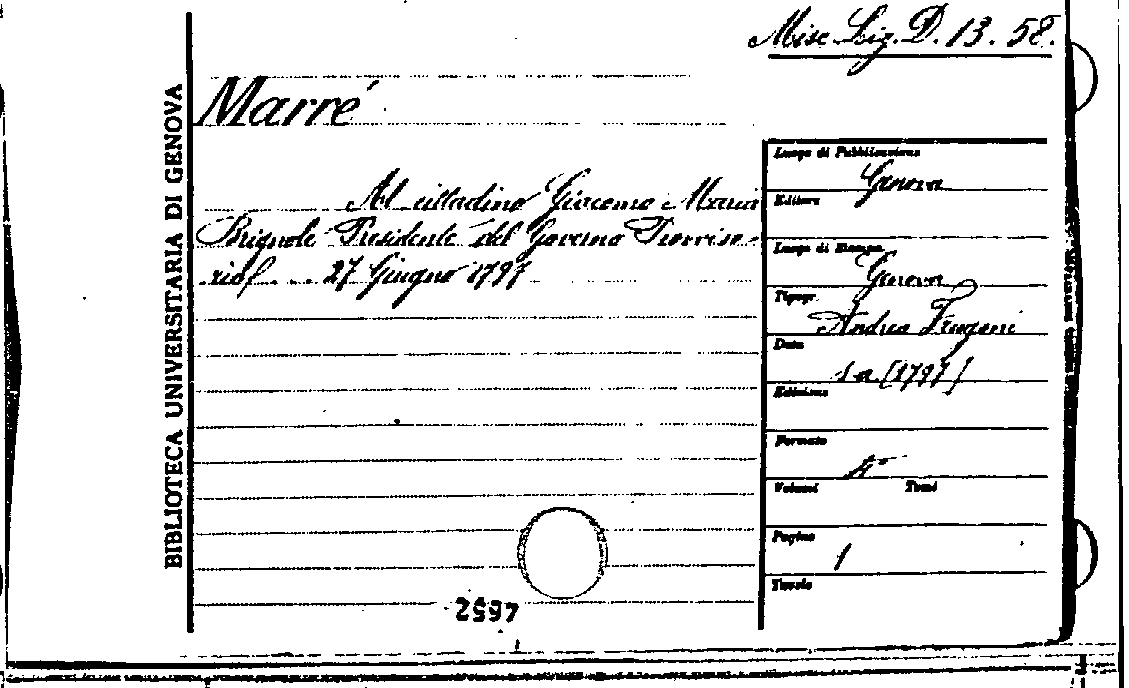 Misc. Lig. D. 13. 58.
BIBLIOTECA UNIVERSITARIA DI GENOVA
Marré
Al cittadino Giacomo Maria
Brignole Presidente del Governo Provviso-
rio/ . . . 27 Giugno 1797
Luogo di Pubblicazione
Genova
Editore
Luogo di Stampa
Genova
Tipogr.
Andrea Frugoni
Data
s.a. [1797]
Edizione
Formato
4°
Volumi Tomi
Pagine
1
Tavole
2597